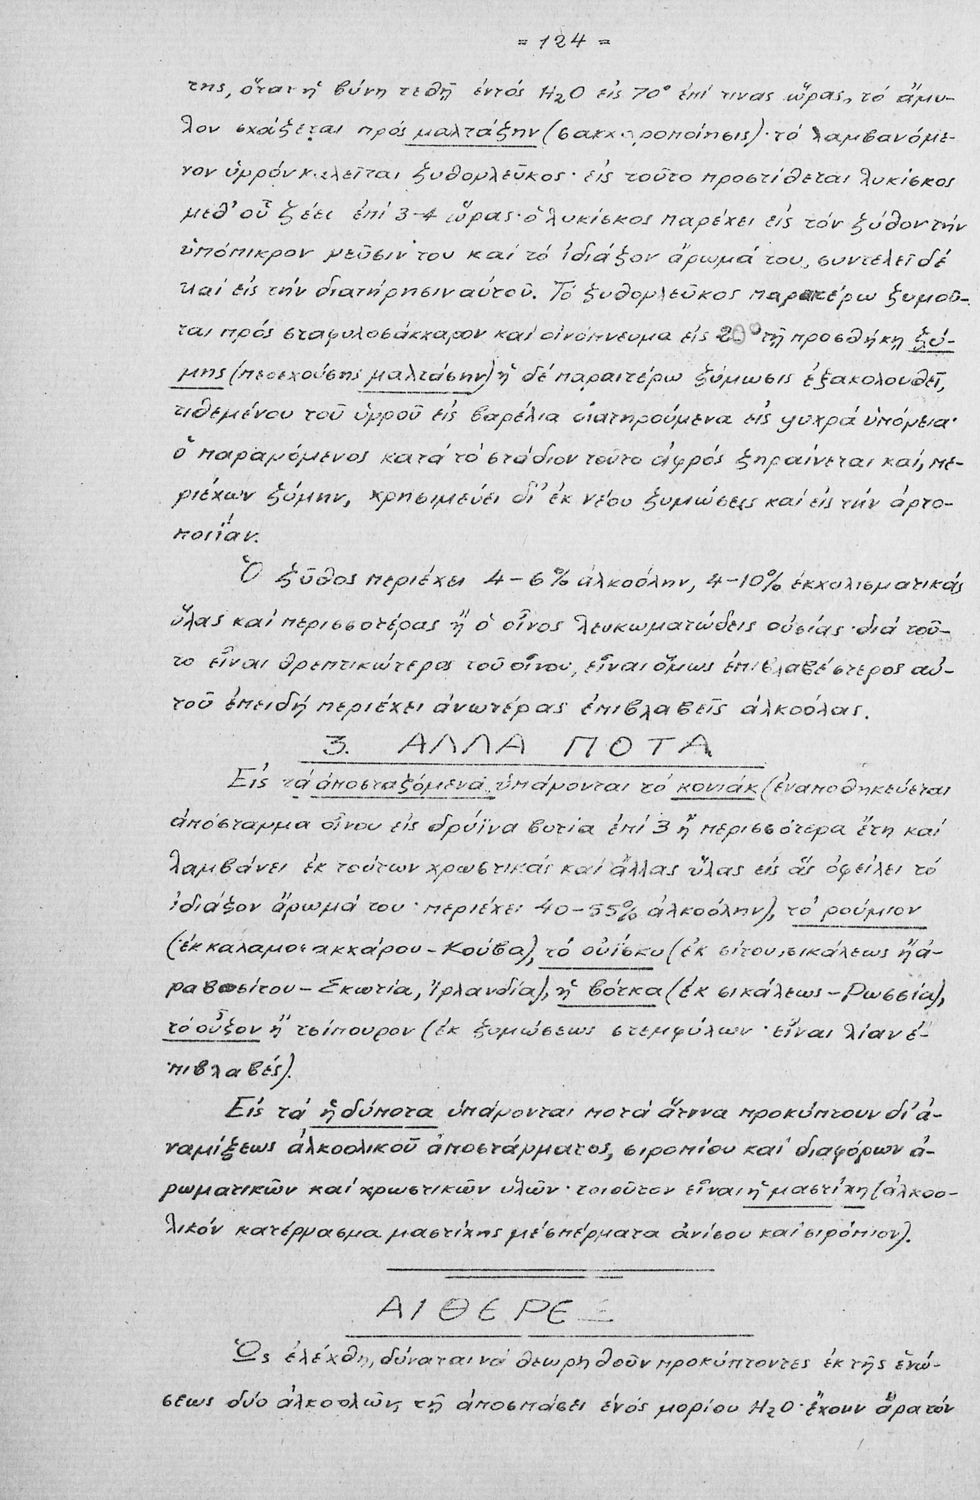 = 124 =
της, ὅταν ἡ βύνη τεθῇ ἐντός H₂O εἰς 70° ἐπί τινας ὥρας, τό ἄμυ-
λον σχάζεται πρός μαλτάζην (σακχαροποίησις)· τό λαμβανόμε-
νον ὑγρόν καλεῖται ζυθογλεῦκος· εἰς τοῦτο προστίθεται λυκίσκος
μεθ' οὗ ζέει ἐπί 3-4 ὥρας· ὁ λυκίσκος παρέχει εἰς τόν ζύθον τήν
ὑπόπικρον γεῦσιν του καί τό ἰδιάζον ἄρωμά του, συντελεῖ δέ
καί εἰς τήν διατήρησιν αὐτοῦ. Τό ζυθογλεῦκος παρατέρω ζυμοῦ-
ται πρός σταφυλοσάκχαρον καί οἰνόπνευμα εἰς 20° τῇ προσθήκῃ ζύ-
μης (περεχούσης μαλτάσην) ἡ δέ παραιτέρω ζύμωσις ἐξακολουθεῖ,
τιθεμένου τοῦ ὑγροῦ εἰς βαρέλια διατηρούμενα εἰς ψυχρά ὑπόγεια·
ὁ παραγόμενος κατά τό στάδιον τοῦτο ἀφρός ξηραίνεται καί, πε-
ριέχων ζύμην, χρησιμεύει δι' ἐκ νέου ζυμώσεις καί εἰς τήν ἀρτο-
ποιΐαν.
Ὁ ζῦθος περιέχει 4-6% ἀλκοόλην, 4-10% ἐκχυλισματικάς
ὕλας καί περισσοτέρας ἤ ὁ οἶνος λευκωματώδεις οὐσίας· διά τοῦ-
το εἶναι θρεπτικώτερος τοῦ οἴνου, εἶναι ὅμως ἐπιβλαβέστερος αὐ-
τοῦ ἐπειδή περιέχει ἀνωτέρας ἐπιβλαβεῖς ἀλκοόλας.
3. ΑΛΛΑ ΠΟΤΑ
Εἰς τά ἀποσταζόμενα ὑπάγονται τό κονιάκ (ἐναποθηκεύεται
ἀπόσταγμα οἴνου εἰς δρύϊνα βυτία ἐπί 3 ἤ περισσότερα ἔτη καί
λαμβάνει ἐκ τούτων χρωστικάς καί ἄλλας ὕλας εἰς ἅς ὀφείλει τό
ἰδιάζον ἄρωμά του· περιέχει 40-55% ἀλκοόλην), τό ρούμιον
(ἐκ καλαμοσακχάρου - Κούβα), τό οὐίσκυ (ἐκ σίτου, σικάλεως ἤ ἀ-
ραβοσίτου - Σκωτία, Ἰρλανδία), ἡ βότκα (ἐκ σικάλεως - Ρωσσία),
τό οὖζον ἤ τσίπουρον (ἐκ ζυμώσεως στεμφύλων· εἶναι λίαν ἐ-
πιβλαβές).
Εἰς τά ἡδύποτα ὑπάγονται ποτά ἅτινα προκύπτουν δι' ἀ-
ναμίξεως ἀλκοολικοῦ ἀποστάγματος, σιροπίου καί διαφόρων ἀ-
ρωματικῶν καί χρωστικῶν ὑλῶν· τοιοῦτον εἶναι ἡ μαστίχη (ἀλκοο-
λικόν κατέργασμα μαστίχης μέ σπέρματα ἀνίσου καί σιρόπιον).
ΑΙΘΕΡΕΣ
Ὡς ἐλέχθη, δύναται νά θεωρηθοῦν προκύπτοντες ἐκ τῆς ἑνώ-
σεως δύο ἀλκοολῶν τῇ ἀποσπάσει ἑνός μορίου H₂O· ἔχουν ἄρα τόν